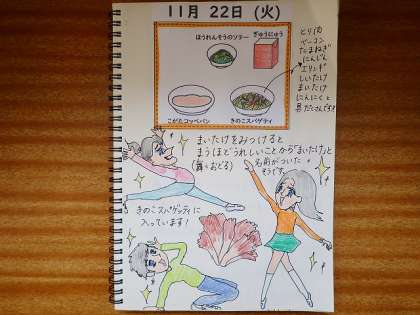 11月 22日 (火)
ほうれんそうのソテー
ぎゅうにゅう
こがたコッペパン
きのこスパゲティ
とり肉
ベーコン
たまねぎ
にんじん
エリンギ
しいたけ
まいたけ
にんにくと
具だくさんです!
まいたけをみつけると
まうほどうれしいことから「まいたけ」と
(舞=おどる)
名前がついた
そうです。
きのこスパゲッティに
入っています!